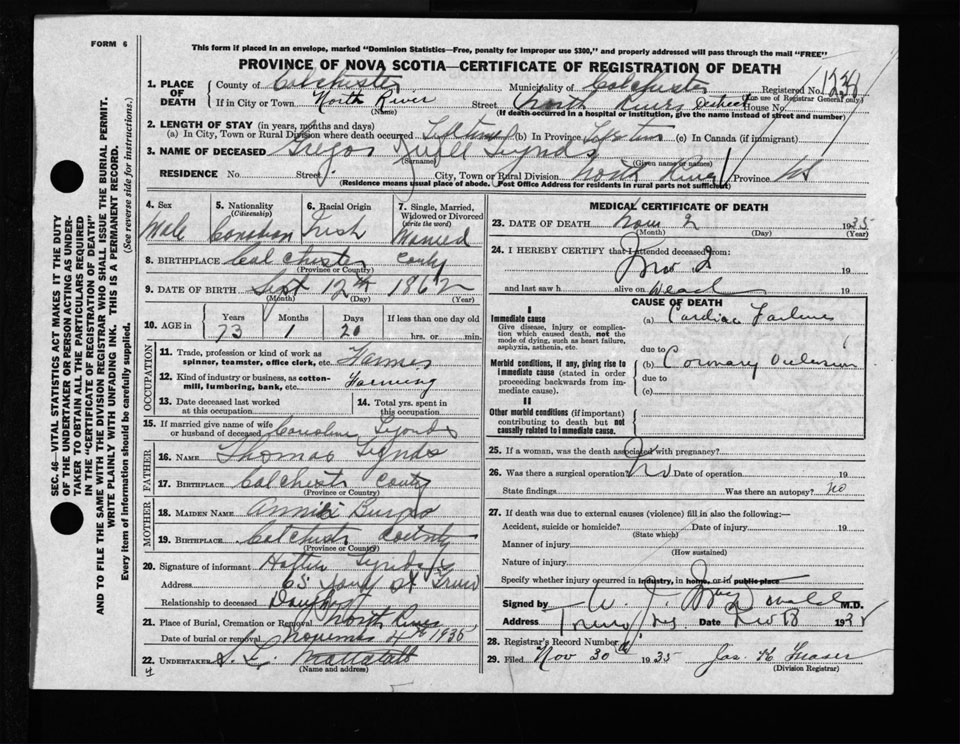 FORM 6
This form if placed in an envelope, marked "Dominion Statistics—Free, penalty for improper use $300," and properly addressed will pass through the mail "FREE"
PROVINCE OF NOVA SCOTIA—CERTIFICATE OF REGISTRATION OF DEATH
1. PLACE OF DEATH County of Colchester Municipality of Colchester Registered No.
(For use of Registrar General only)
If in City or Town North River Street North River District House No.
(Name) (If death occurred in a hospital or institution, give the name instead of street and number)
2. LENGTH OF STAY (in years, months and days)
(a) In City, Town or Rural Division where death occurred Lifetime (b) In Province Lifetime (c) In Canada (if immigrant)
3. NAME OF DECEASED Lynds
(Surname) (Given name or names)
RESIDENCE No. Street City, Town or Rural Division North River Province NS
(Residence means usual place of abode. Post Office Address for residents in rural parts not sufficient)
SEC. 46—VITAL STATISTICS ACT MAKES IT THE DUTY
OF THE UNDERTAKER OR PERSON ACTING AS UNDER-
TAKER TO OBTAIN ALL THE PARTICULARS REQUIRED
IN THE "CERTIFICATE OF REGISTRATION OF DEATH"
AND TO FILE THE SAME WITH THE DIVISION REGISTRAR WHO SHALL ISSUE THE BURIAL PERMIT.
WRITE PLAINLY WITH UNFADING INK. THIS IS A PERMANENT RECORD.
Every item of information should be carefully supplied. (See reverse side for instructions.)
4. Sex 5. Nationality (Citizenship) 6. Racial Origin 7. Single, Married, Widowed or Divorced (Write the word)
Male Canadian Irish Married
8. BIRTHPLACE Colchester County
(Province or Country)
9. DATE OF BIRTH Sept 12th 1862
(Month) (Day) (Year)
10. AGE in Years Months Days If less than one day old
73 1 20 hrs. or min.
OCCUPATION
11. Trade, profession or kind of work as spinner, teamster, office clerk, etc. Farmer
12. Kind of industry or business, as cotton-mill, lumbering, bank, etc. Farming
13. Date deceased last worked at this occupation 14. Total yrs. spent in this occupation
15. If married give name of wife or husband of deceased Caroline Lynds
FATHER
16. NAME Thomas Lynds
17. BIRTHPLACE Colchester County
(Province or Country)
MOTHER
18. MAIDEN NAME Annie
19. BIRTHPLACE Colchester County
(Province or Country)
20. Signature of informant Lynds
Address St Truro
Relationship to deceased Daughter
21. Place of Burial, Cremation or Removal North River
Date of burial or removal November 4th 1935
22. UNDERTAKER S. L. Mattatall
(Name and address)
MEDICAL CERTIFICATE OF DEATH
23. DATE OF DEATH Nov 2 1935
(Month) (Day) (Year)
24. I HEREBY CERTIFY that I attended deceased from:
Nov 2 19
19
and last saw h alive on Dead 19
CAUSE OF DEATH
I
Immediate cause
Give disease, injury or complication which caused death, not the mode of dying, such as heart failure, asphyxia, asthenia, etc.
(a) Cardiac Failure
due to
Morbid conditions, if any, giving rise to immediate cause (stated in order proceeding backwards from immediate cause).
(b) Coronary Occlusion
due to
(c)
II
Other morbid conditions (if important) contributing to death but not causally related to immediate cause.
25. If a woman, was the death associated with pregnancy?
26. Was there a surgical operation? No Date of operation 19
State findings Was there an autopsy? no
27. If death was due to external causes (violence) fill in also the following:—
Accident, suicide or homicide? Date of injury 19
(State which)
Manner of injury
(How sustained)
Nature of injury
Specify whether injury occurred in industry, in home, or in public place
Signed by M.D.
Address Truro NS Date 193
28. Registrar's Record Number
29. Filed Nov 30th 1935 Jas. H Fraser
(Division Registrar)